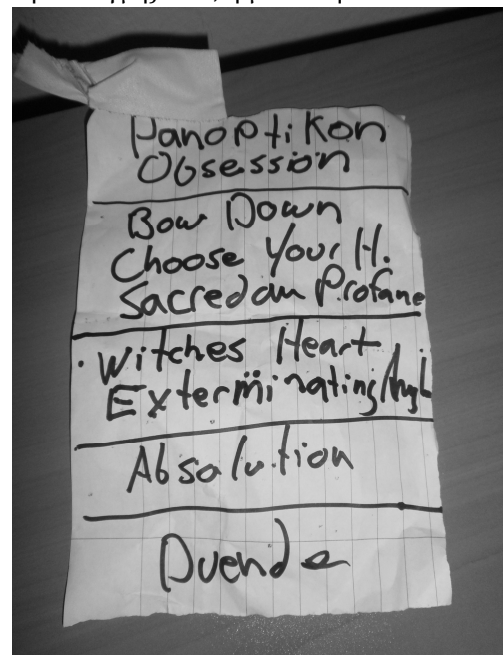 Panoptikon
Obsession
Bow Down
Choose Your H.
Sacred an Profane
Witches Heart
Exterminating Angl
Absolution
Duende